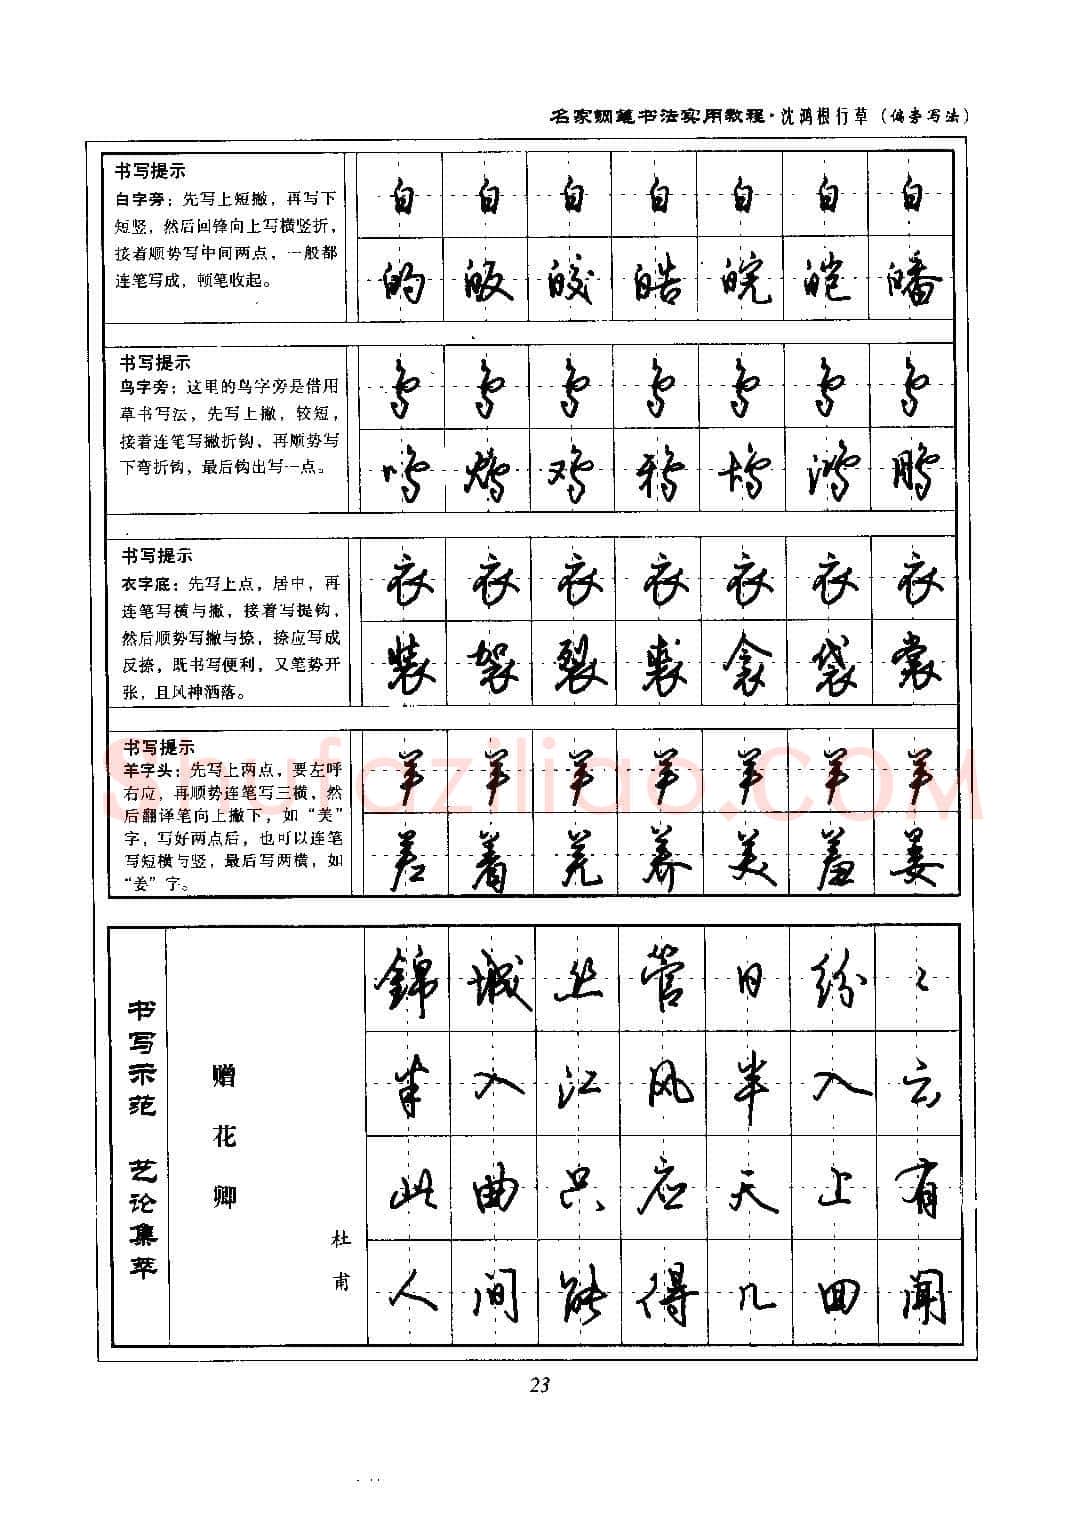 名家钢笔书法实用教程·沈鸿根行草(偏旁写法)
书写提示
白字旁：先写上短撇，再写下
短竖，然后回锋向上写横竖折，
接着顺势写中间两点，一般都
连笔写成，顿笔收起。
白白白白白白白
的皈皎皓皖皑皤
书写提示
鸟字旁：这里的鸟字旁是借用
草书写法，先写上撇，较短，
接着连笔写撇折钩，再顺势写
下弯折钩，最后钩出写一点。
鸟鸟鸟鸟鸟鸟鸟
鸣 鸡鸦 鸿鹏
书写提示
衣字底：先写上点，居中，再
连笔写横与撇，接着写提钩，
然后顺势写撇与捺，捺应写成
反捺，既书写便利，又笔势开
张，且风神洒落。
衣衣衣衣衣衣衣
装袈裂裁衾袋裳
书写提示
羊字头：先写上两点，要左呼
右应，再顺势连笔写三横，然
后翻译笔向上撇下，如“美”
字，写好两点后，也可以连笔
写短横与竖，最后写两横，如
“姜”字。
羊羊羊羊羊羊羊
差着羌养美羞姜
书写示范 艺论集萃
赠花卿
杜甫
錦城丝管日纷〻
半入江风半入云
此曲只应天上有
人间能得几回闻
23
shufaziliao.COM